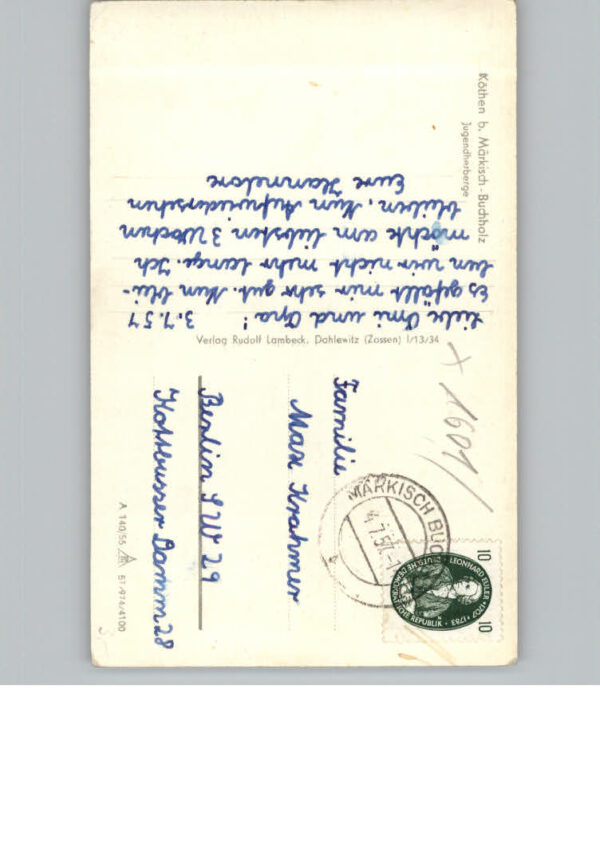 Köthen b. Märkisch-Buchholz
Jugendherberge
3.7.57
Liebe Omi und Opa!
Es gefällt mir sehr gut. Nun blei-
ben wir nicht mehr lange. Ich
möchte am liebsten 3 Wochen
bleiben. Nun Aufwiedersehen
Eure Hannelore
Verlag Rudolf Lambeck, Dahlewitz (Zossen) I/13/34
x 1601/
Familie
Max Krahmer
Berlin SW 29
Kottbusser Damm 28
A 140/56 BT/974/4100
MÄRKISCH BUC
4.7.57
10
LEONHARD EULER · 1707-1783
DEUTSCHE DEMOKRATISCHE REPUBLIK
10